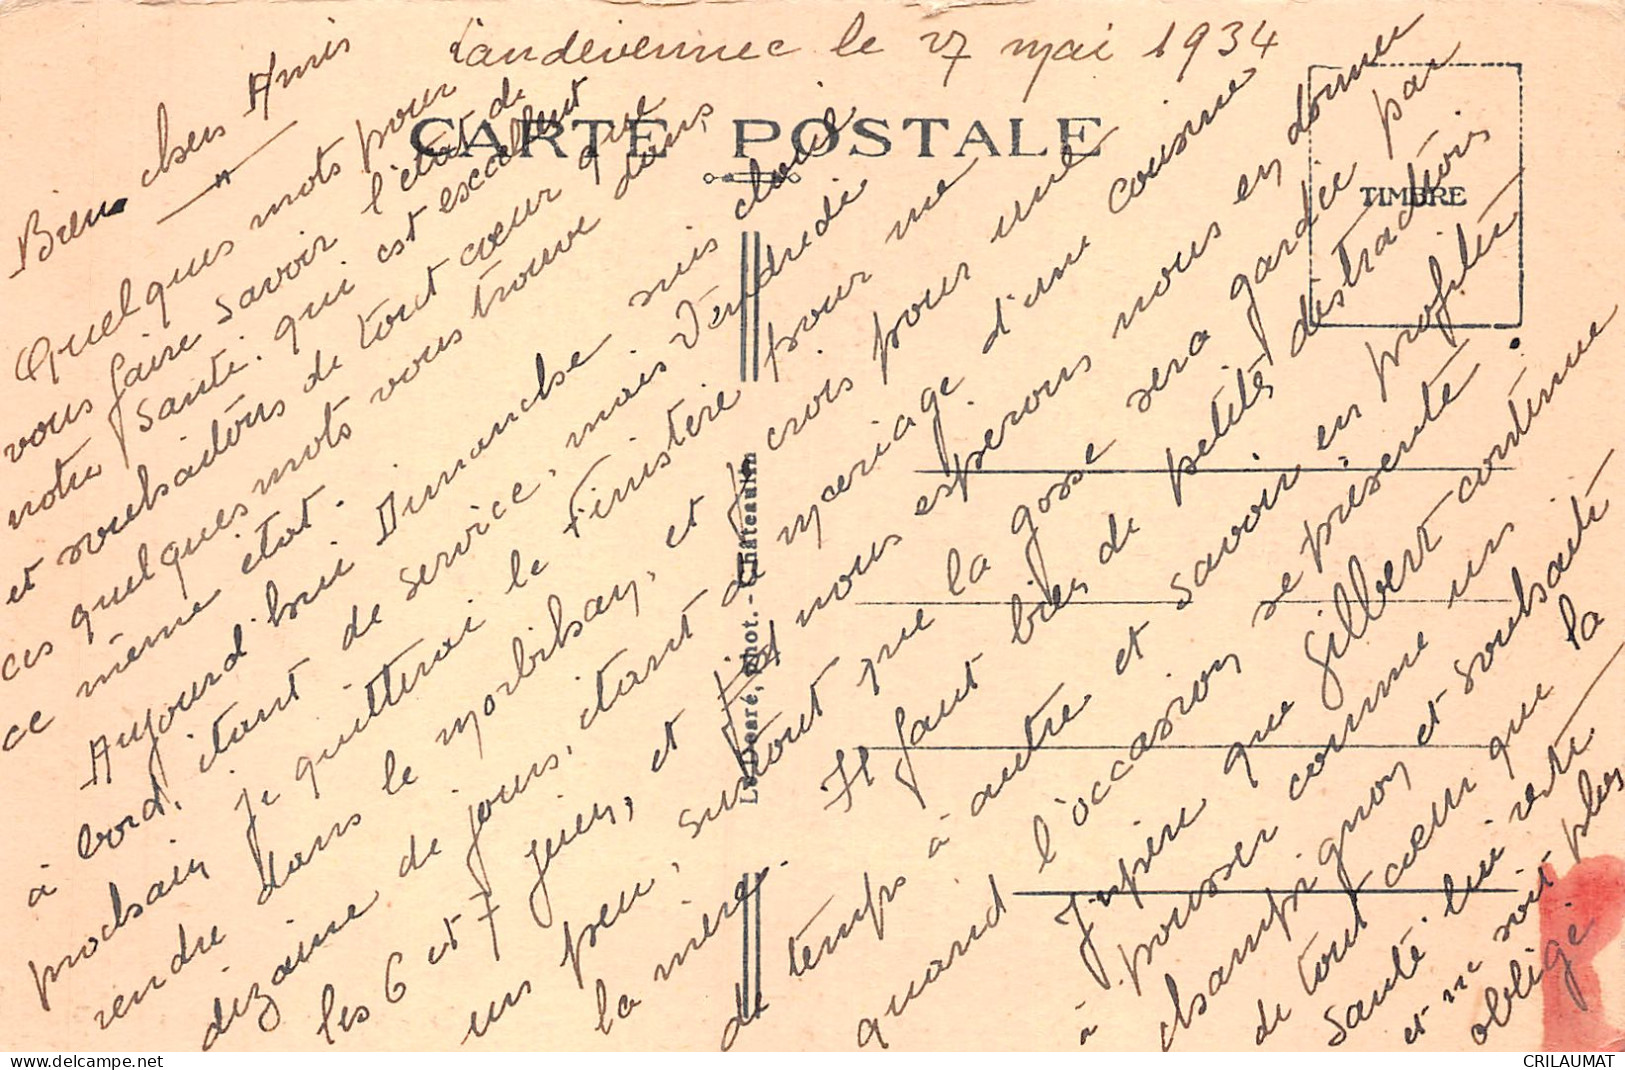 Landévennec le 27 mai 1934
CARTE POSTALE
TIMBRE
Le Doaré, phot. - Châteaulin
Bien chers Amis
Quelques mots pour
vous faire savoir l'état de
notre santé. qui est excellent
et souhaitons de tout coeur que
ces quelques mots vous trouve dans
ce même état.
Aujourd'hui Dimanche suis
à bord, étant de service, mais Vendredi
prochain je quitterai le Finistère pour me
rendre dans le Morbihan, et je crois pour une
dizaine de jours, étant de mariage d'une cousine
les 6 et 7 Juin, et nous esperons nous en donner
un peu, surtout que la gosse sera gardée par
la mère. Il faut bien de petites distractions
de temps à autre et savoir en profiter
quand l'occasion se présente
J'espère que Gilbert continue
à pousser comme un
champignon et souhaite
de tout coeur que la
santé lui reste
et ne soit plus
obligé
CRILAUMAT